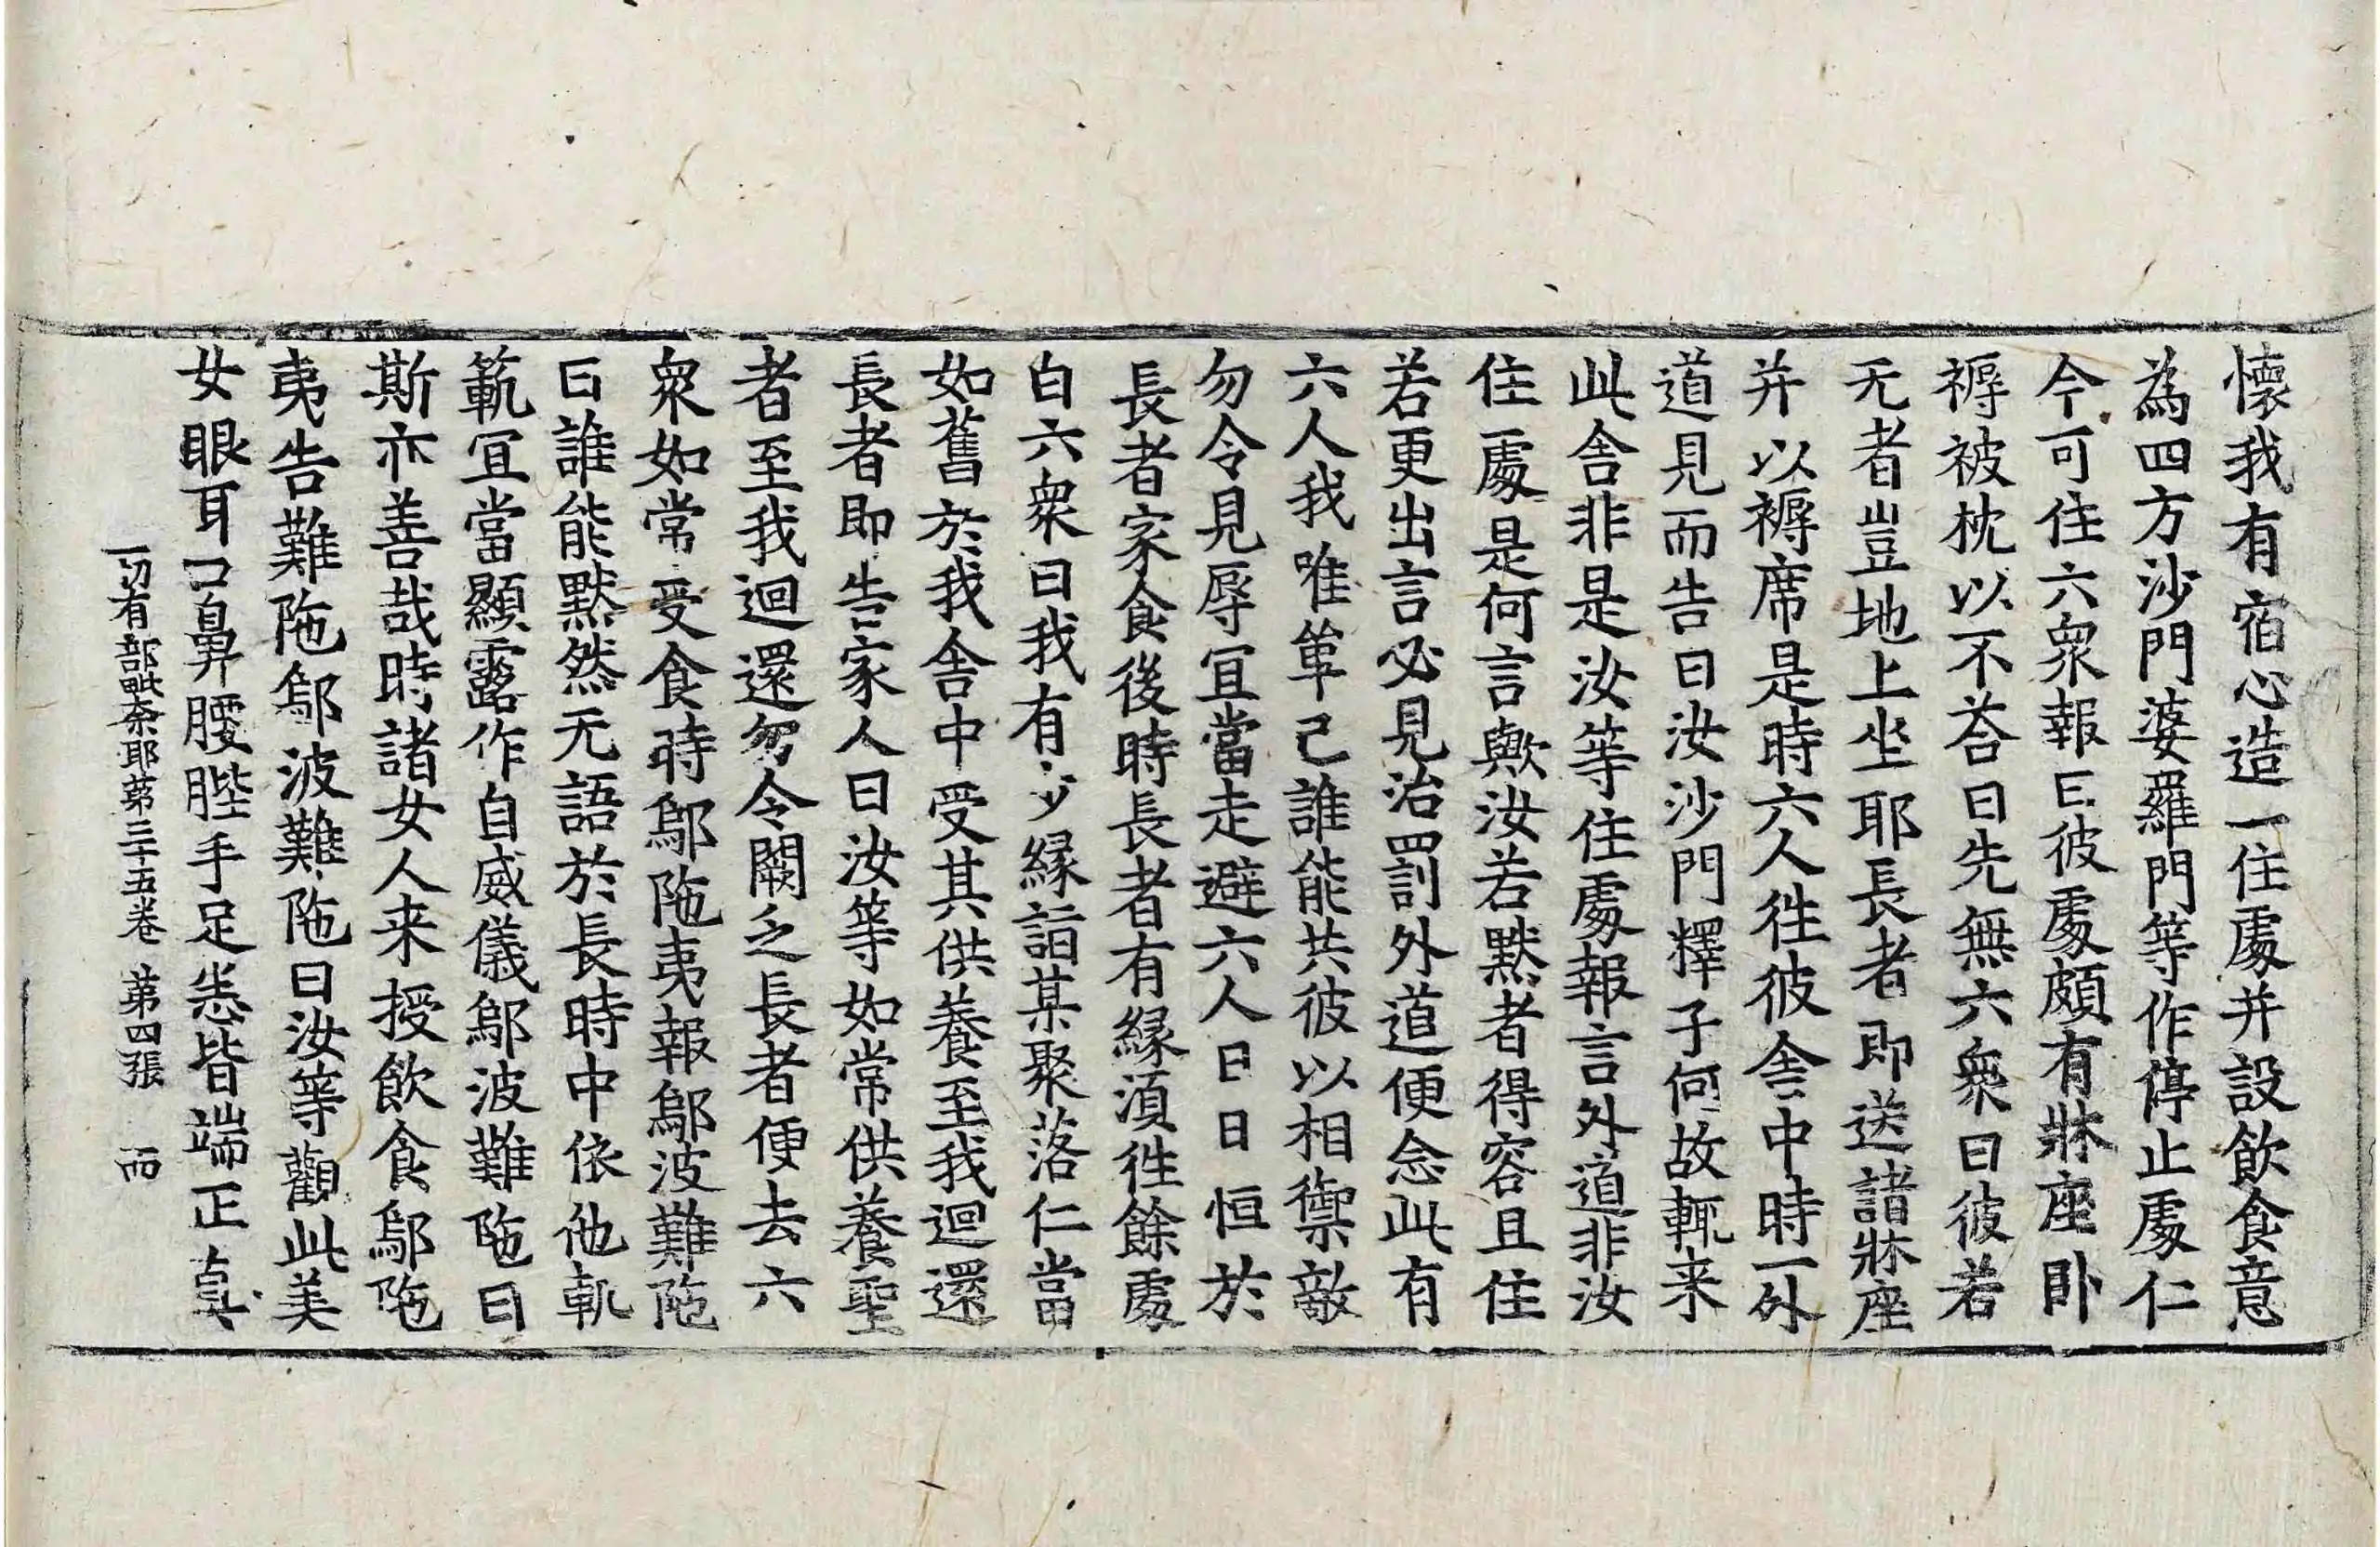 懷我有宿心造一住處并設飲食意
為四方沙門婆羅門等作停止處仁
今可住六衆報曰彼處頗有牀座卧
褥被枕以不荅曰先無六衆曰彼若
无者豈地上坐耶長者即送諸牀座
并以褥席是時六人徃彼舍中時一外
道見而告曰汝沙門釋子何故輒来
此舍非是汝等住處報言外道非汝
住處是何言歟汝若黙者得容且住
若更出言必見治罰外道便念此有
六人我唯單己誰能共彼以相禦敵
勿令見辱冝當走避六人日日恒於
長者家食後時長者有縁湏徃餘處
白六衆曰我有少縁詣某聚落仁當
如舊於我舍中受其供養至我迴還
長者即告家人曰汝等如常供養聖
者至我迴還勿令闕乏長者便去六
衆如常受食時鄔陁夷報鄔波難陁
曰誰能黙然无語於長時中依他軌
範冝當顯露作自威儀鄔波難陁曰
斯亦善哉時諸女人来授飲食鄔陁
夷告難陁鄔波難陁曰汝等觀此美
女眼耳口鼻腰髀手足悉皆端正真
一切有部毗奈耶第三十五卷 第四張 而